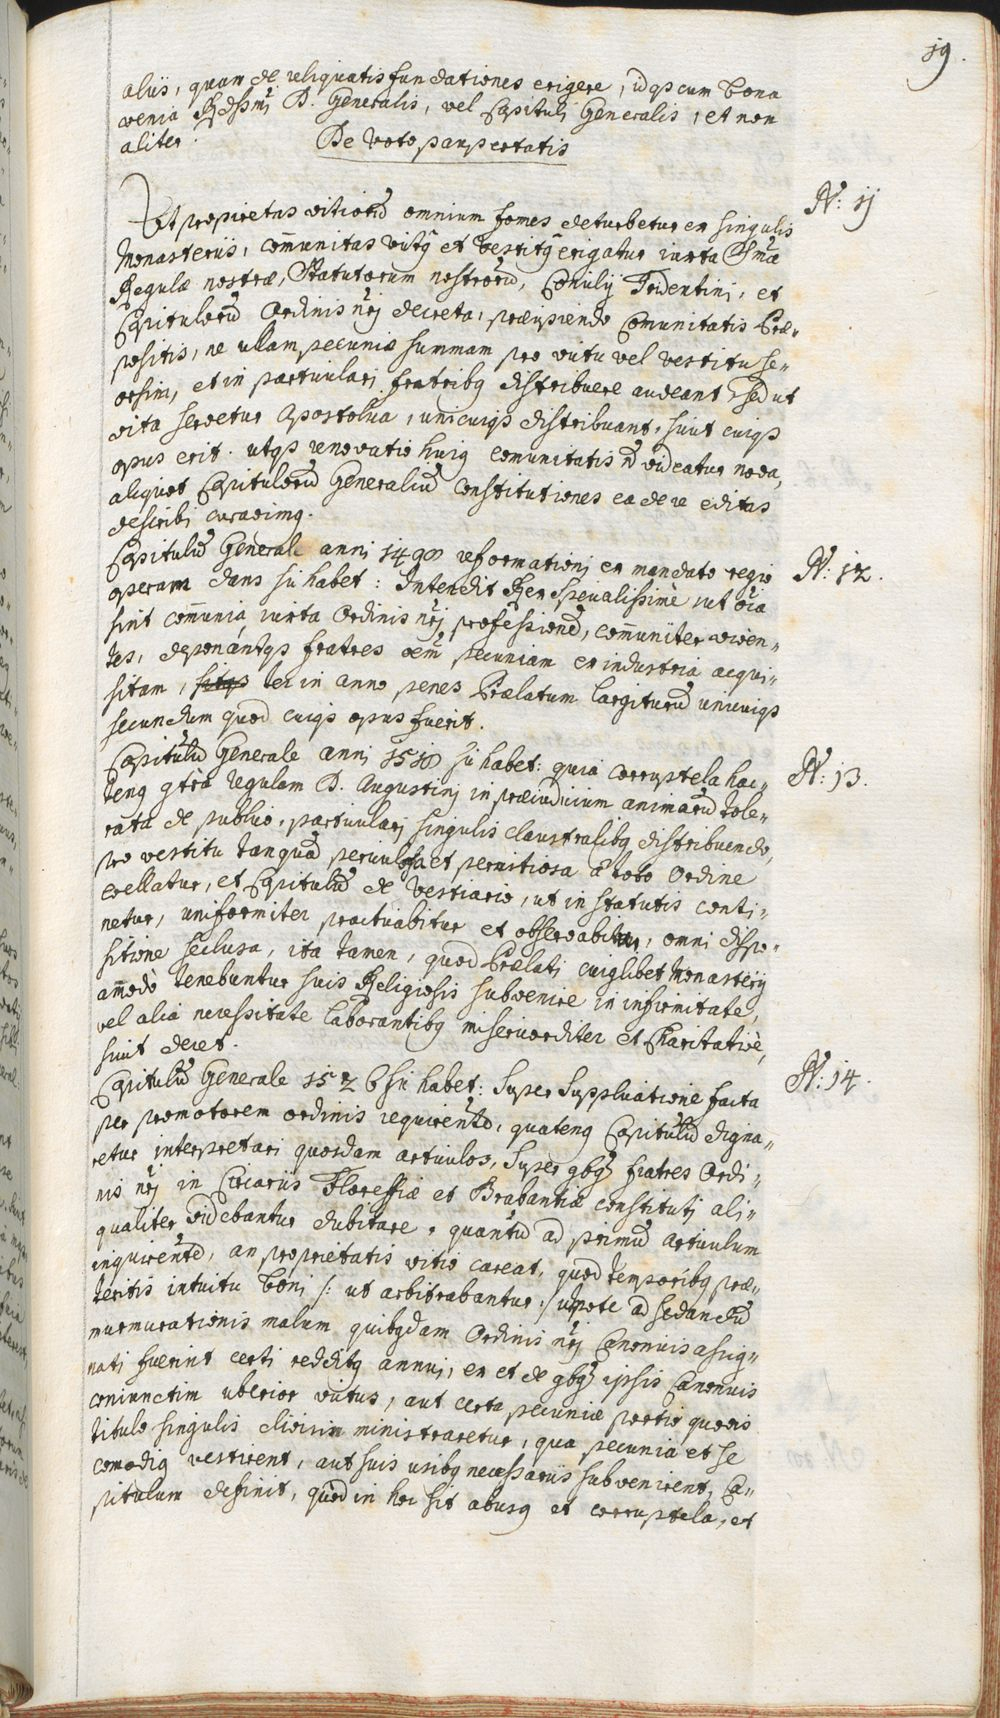 19.
aliis, quam de reliquatis fundationes erigere, idqs cum bona
venia Rdssmi D. Generalis, vel Capituli Generalis, et non
aliter.
De Voto paupertatis
N: 11
Ut proprietas vitiorũ omnium fomes deturbetur ex singulis
Monasteriis, com̃unitas victq et vestitq erigatur iuxta Smæ
Regulæ nostræ, Statutorum nostrorũ, Concilij Tridentini, et
Capitulorũ Ordinis nrj decreta, præcipiendo Comunitatis Præ-
positis, ne ullam pecuniæ summam pro victu vel vestitu se-
orsim, et in particulari fratribq distribuere audeant, sed ut
vita servetur Apostolica, unicuiqs distribuant, sicut cuiqs
opus erit. utqs renovatio huiq comunitatis ñ videatur nova,
aliquot Capitulorũ Generaliũ Constitutiones ea de re editas
describi curavimq.
N: 12.
Capitulũ Generale anni 1498 reformationi ex mandato regio
operam dans sic habet: Intendit Rex specialissimè ut oĩa
sint com̃unia iuxta Ordinis nrj professionẽ, com̃uniter viven-
tes, deponantqs fratres oem̃ pecuniam ex industria acqui-
sitam, sitqs ter in anno penes Prælatum largiturũ unicuiqs
secundum quod cuiqs opus fuerit.
N: 13.
Capitulũ Generale anni 1518 sic habet: quia corruptela hac-
tenq gtra regulam D. Augustini in præiudicium animarũ tole-
rata de publico, particulari singulis claustralibq distribuendo,
pro vestitu tanquã periculosa et pernitiosa à toto Ordine
evellatur, et Capitulũ de Vestiario, ut in statutis conti-
netur, uniformiter practicabitur et observabitur, omni dispo-
sitione seclusa, ita tamen, quod Prælati cuiqlibet Monasterij
am̃odò tenebuntur suis Religiosis subvenire in infirmitate,
vel alia necessitate laborantibq misericorditer et Charitativè,
sicut decet.
N: 14.
Capitulũ Generale 1526 sic habet: Super Supplicatione facta
per promotorem ordinis requirente, quatenq Capitulũ digna-
retur interpretari quosdam articulos, super qbq fratres Ordi-
nis nrj in Circariis Floreffiæ et Brabantiæ constituti ali-
qualiter videbantur dubitare, quantũ ad primũ articulum
inquirente, an proprietatis vitio careat, quod temporibq præ-
teritis intuitu boni /: ut arbitrabantur :/ utpote ad sedandũ
murmurationis malum quibqdam Ordinis nrj Canonicis assig-
nati fuerint certi redditq annui, ex et de qbq ipsis Canonicis
coniunctim uberior victus, aut certa pecuniæ portio quovis
titulo singulis divisim ministraretur, qua pecunia et se
comodiq vestirent, aut suis usibq necessariis subvenirent, Ca-
pitulum definit, quod in hoc sit abusq et corruptela, et